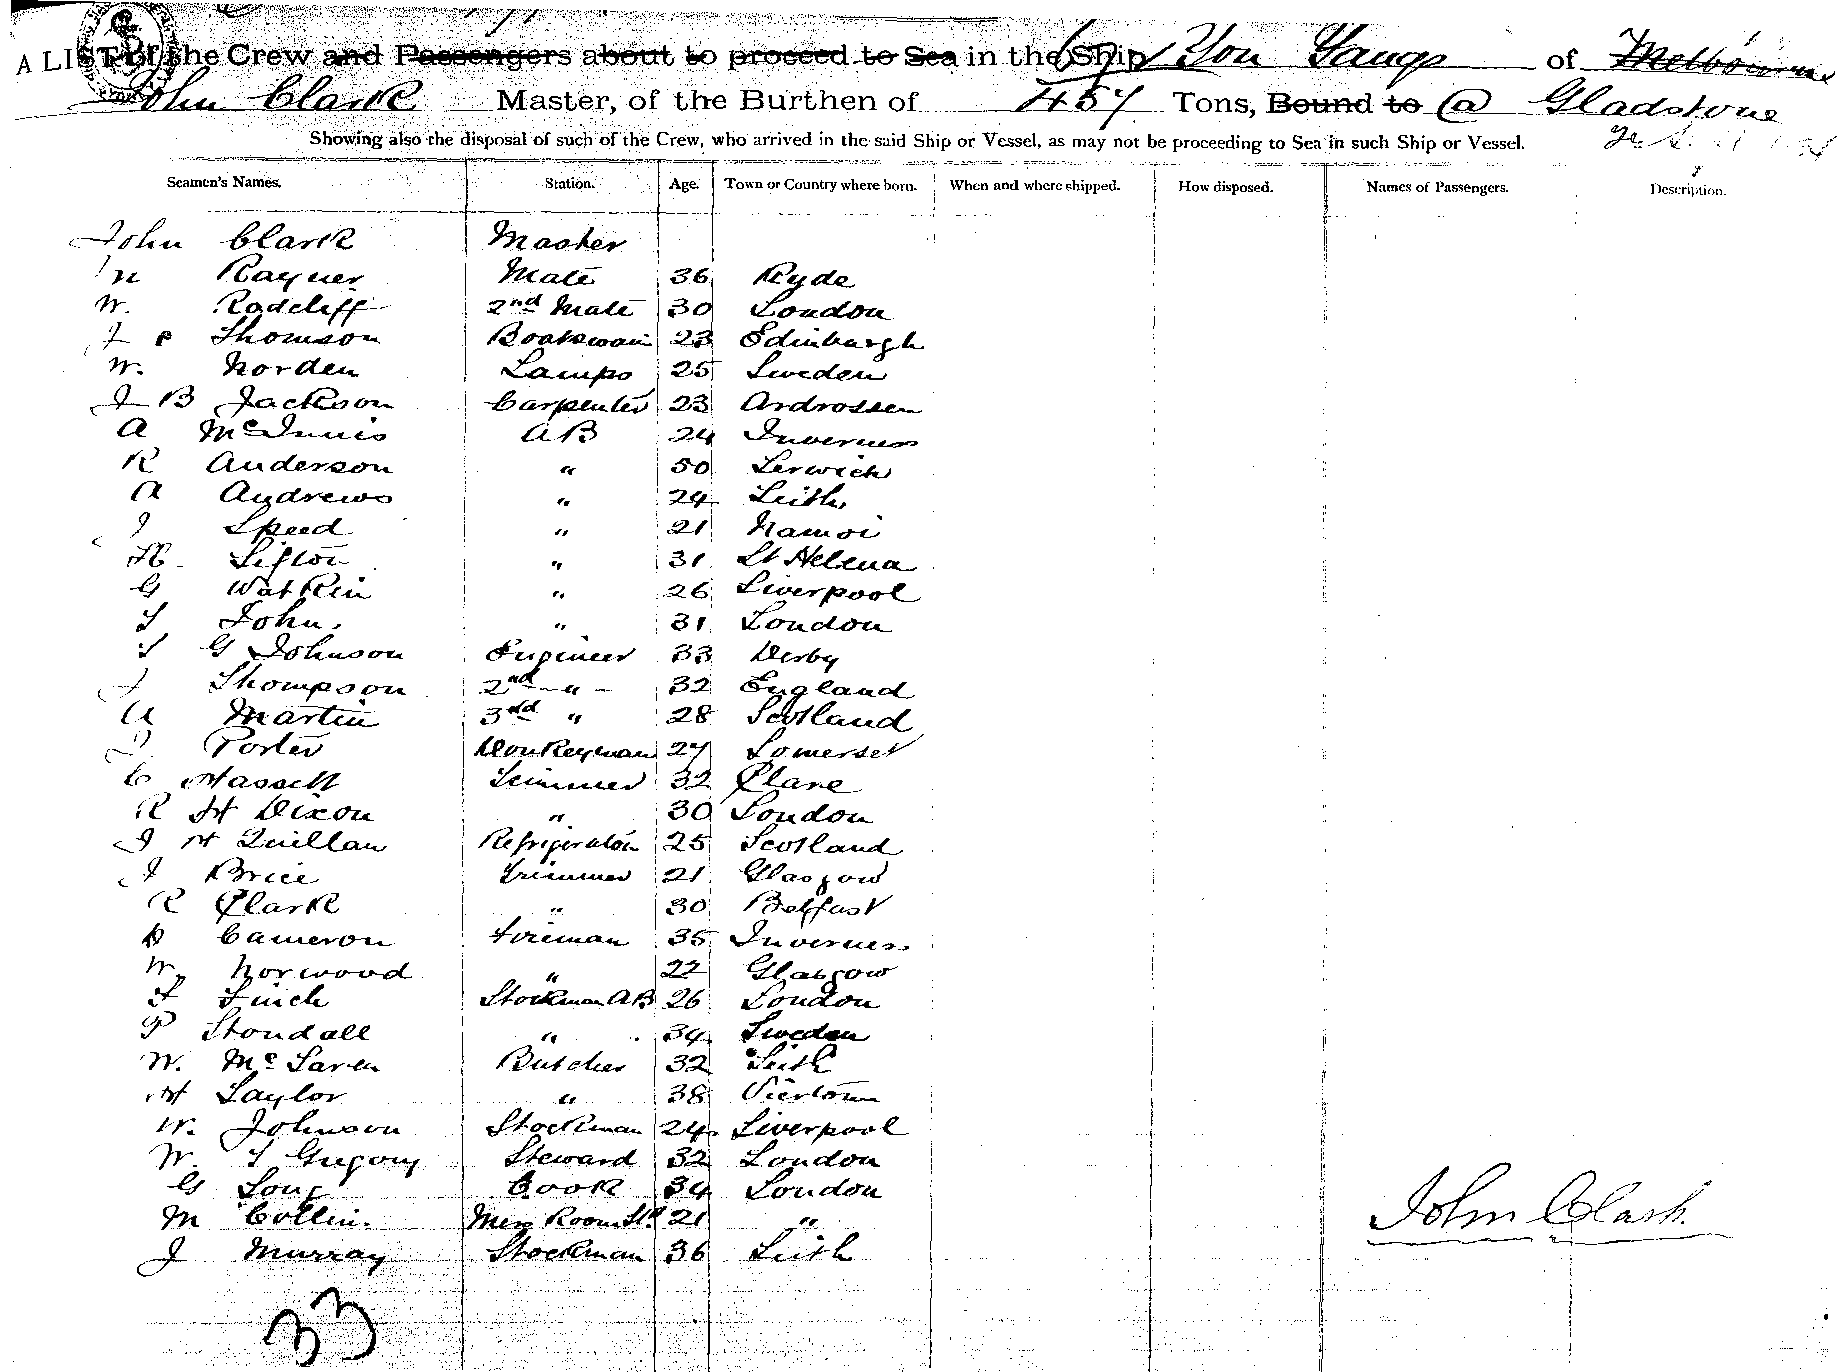 A LIST of the Crew and Passengers about to proceed to Sea in the Ship You Yangs of Melbourne
John Clark Master, of the Burthen of 457 Tons, Bound to @ Gladstone
Showing also the disposal of such of the Crew, who arrived in the said Ship or Vessel, as may not be proceeding to Sea in such Ship or Vessel.
Seamen's Names. Station. Age. Town or Country where born. When and where shipped. How disposed. Names of Passengers. Description.
John Clark Master
Rayner Mate 36 Ryde
W. Radcliff 2nd Mate 30 London
J Thomson Boatswain 23 Edinburgh
W. Norden Lamps 25 Sweden
J B Jackson Carpenter 23 Ardrossen
A McInnis AB 24 Inverness
R Anderson " 50 Lerwick
A Andrews " 24 Leith
J Speed " 21 Namoi
H. Sifton " 31 St Helena
G Watkin " 26 Liverpool
T John. " 31 London
T G Johnson Engineer 33 Derby
J Thompson 2nd " 32 England
A Martin 3rd " 28 Scotland
J Porter Donkeyman 27 Somerset
C Hassett Trimmer 32 Clare
R H Dixon " 30 London
J H Quillan 25 Scotland
J Brice Trimmer 21 Glasgow
R Clark " 30 Belfast
D Cameron Fireman 35 Inverness
W. Norwood " 22 Glasgow
F Finch Stockman AB 26 London
P Stondall " 34 Sweden
W. McLaren Butcher 32 Leith
H Taylor " 38
W. Johnson Stockman 24 Liverpool
W. T Gregory Steward 32 London
G Long Cook 34 London
M Collin. Mess Room Std 21 "
J Murray Stockman 36 Leith
John Clark.
33